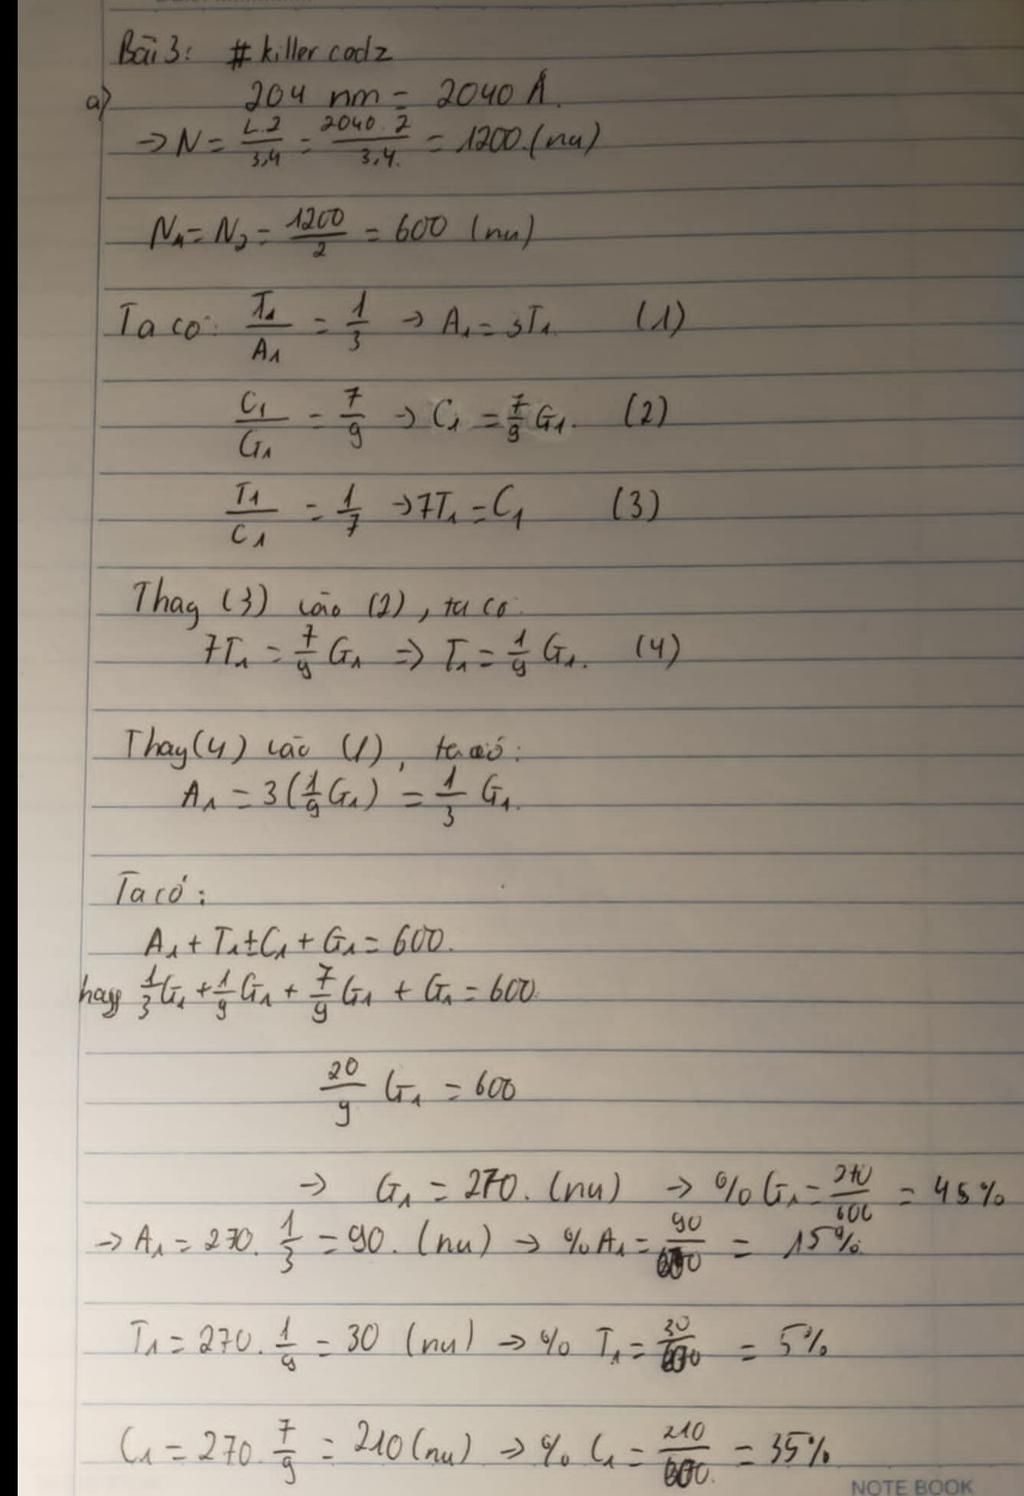 Bài 3: # killer codz
a) 204 nm = 2040 Å.
→ N = L.2/3,4 = 2040.2/3,4. = 1200.(nu)
N1 = N2 = 1200/2 = 600 (nu)
Ta có: T1/A1 = 1/3 → A1 = 3T1 (1)
C1/G1 = 7/9 → C1 = 7/9 G1. (2)
T1/C1 = 1/7 → 7T1 = C1 (3)
Thay (3) vào (2), ta có
7T1 = 7/9 G1 => T1 = 1/9 G1. (4)
Thay (4) vào (1), ta có:
A1 = 3(1/9 G1) = 1/3 G1.
Ta có:
A1 + T1 ± C1 + G1 = 600.
hay 1/3 G1 + 1/9 G1 + 7/9 G1 + G1 = 600
20/9 G1 = 600
→ G1 = 270. (nu) → % G1 = 270/600 = 45%
→ A1 = 270. 1/3 = 90. (nu) → % A1 = 90/600 = 15%.
T1 = 270. 1/9 = 30 (nu) → % T1 = 30/600 = 5%
C1 = 270. 7/9 = 210 (nu) → % C1 = 210/600. = 35%
NOTE BOOK